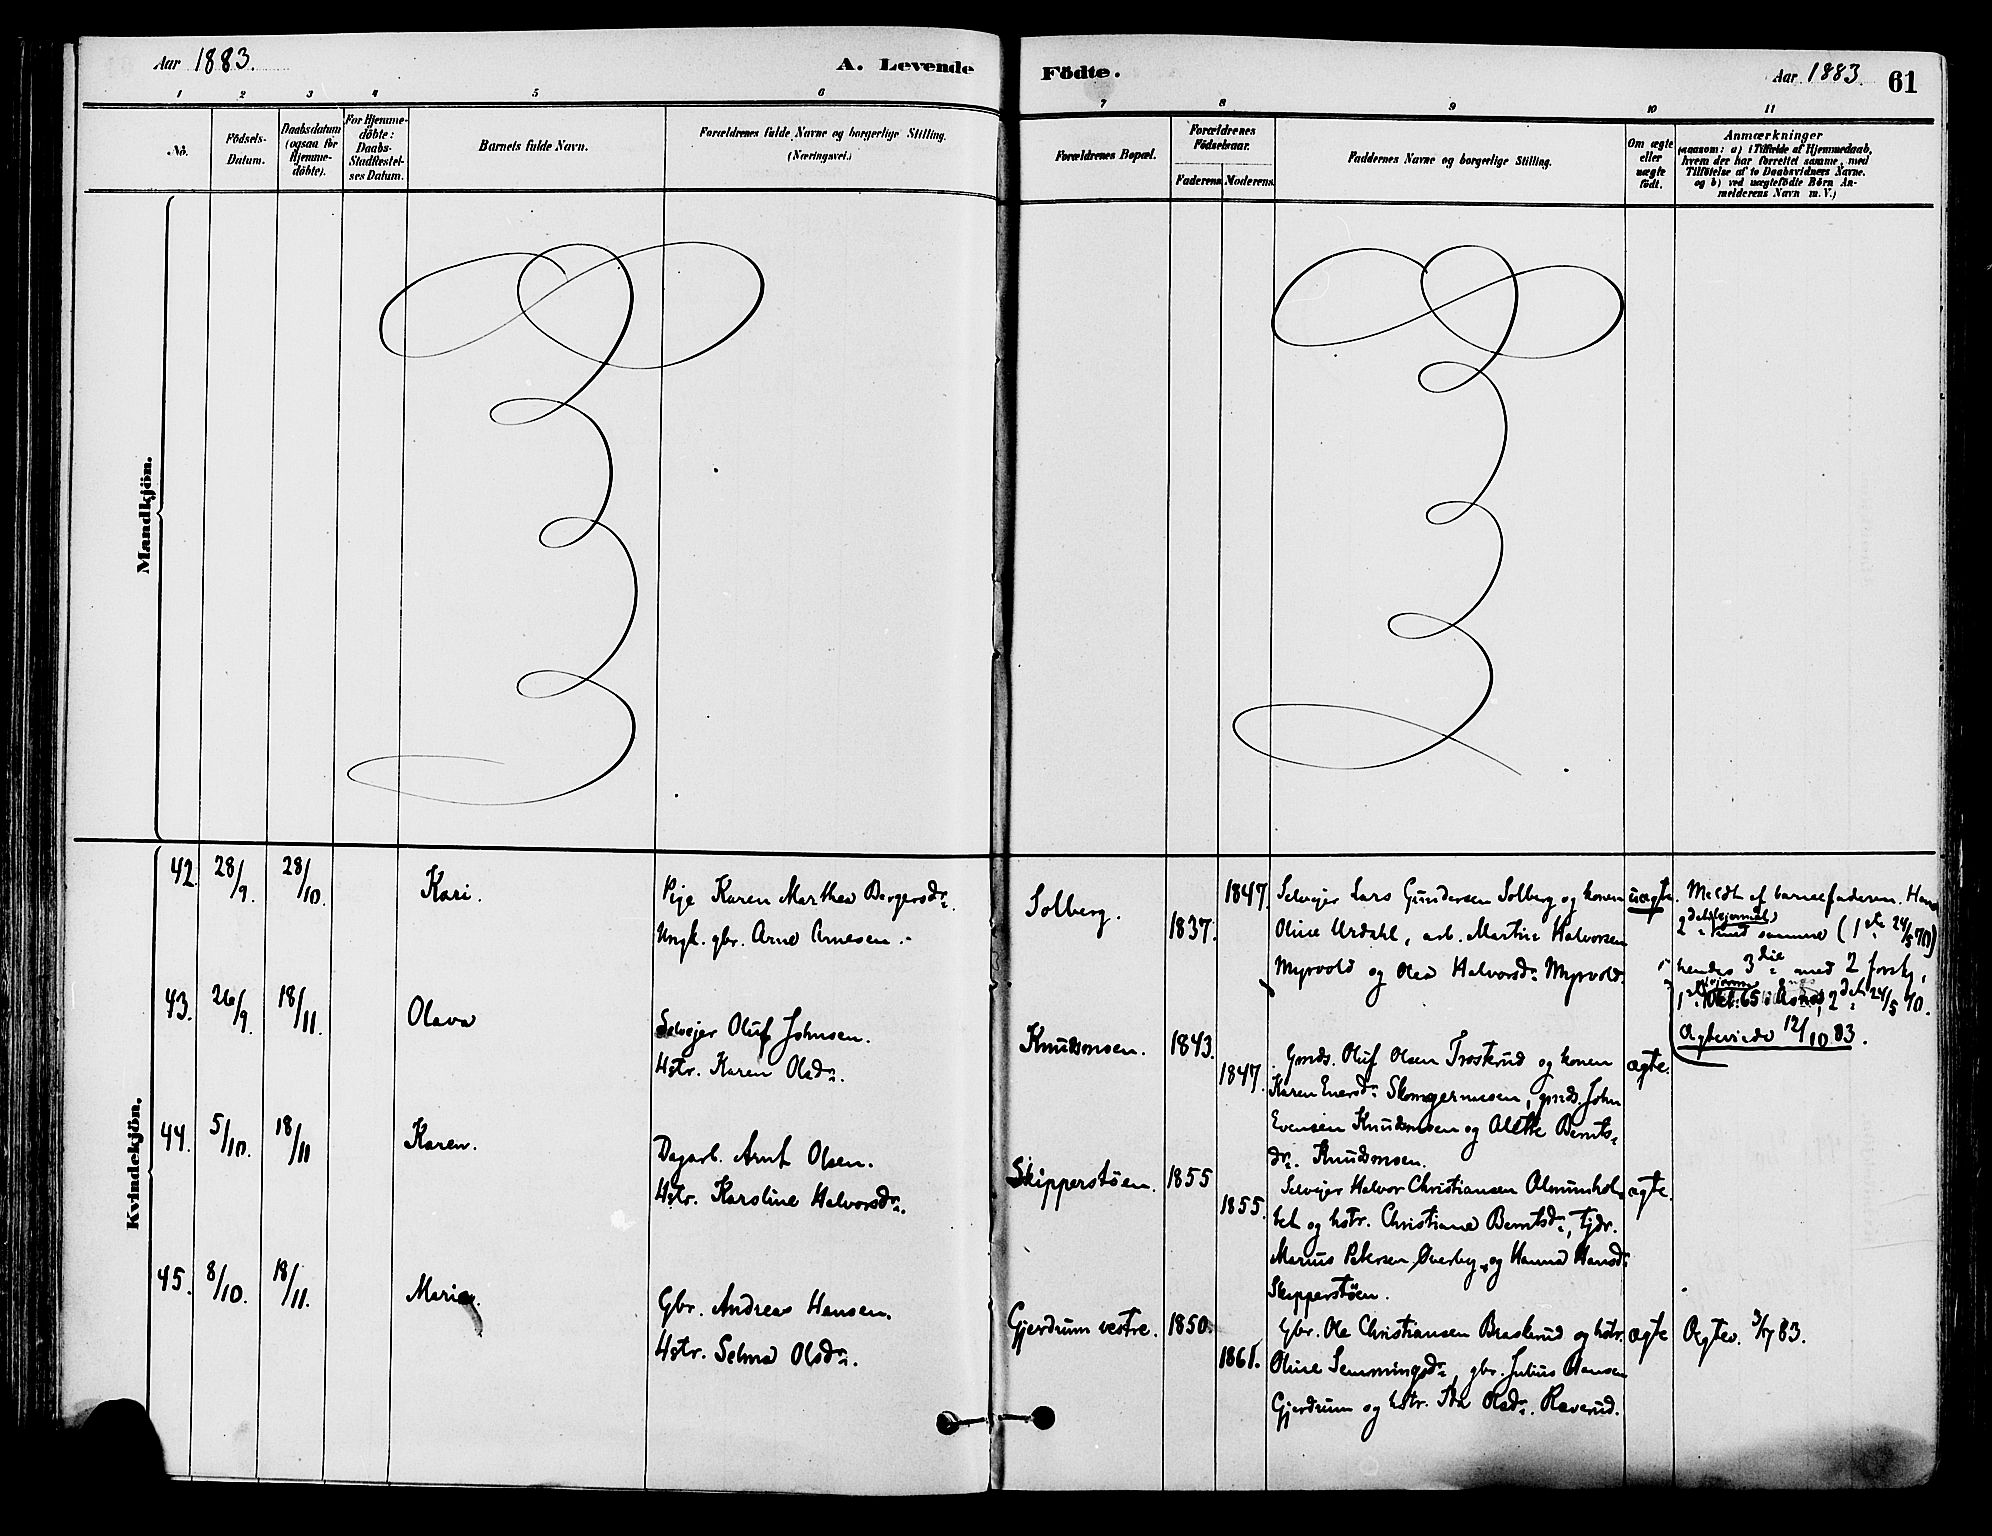 Aar 1883. A. Levende
Födte. Aar 1883. 61
1 2 3 4 5 6
7 8 9 10 11
No.
Födsels-
Datum.
Daabsdatum
(ogsaa for
Hjemme-
döbte).
For Hjemme-
döbte:
Daabs-
Stadfæstel-
ses Datum.
Barnets fulde Navn.
Forældrenes fulde Navne og borgerlige Stilling.
(Næringsvei.)
Forældrenes Bopæl.
Forældrenes
Födselsaar.
Faderens Moderens
Faddernes Navne og borgerlige Stilling.
Om ægte
eller
uægte
födt.
Anmærkninger
(saasom: a) i Tilfælde af Hjemmedaab,
hvem der har forrettet samme, med
Tilföielse af to Daabsvidners Navne.
og b) ved uægtefödte Börn An-
melderens Navn m. V.)
Mandkjön.
Kvindekjön.
42. 28/9. 28/10. Kari.
Pige Karen Marthea Bergersdr.
Ungk. gbr. Arne Arnesen.
Solberg. 1837. 1847.
Selvejer Lars Gundersen Solberg og konen
Oline Urdahl, arb. Martin Halvorsen
Myrvold og Olea Halvorsdr. Myrvold.
uægte.
Meldt af barnefaderen. Hans
2det med samme (1ste 24/5 70)
hendes 3die med 2 forskj.
2det 24/5 70.
Ægteviede 12/10 83.
43. 26/9. 18/11. Olava
Selvejer Oluf Johnsen.
Hstr. Karen Olsdr.
Knudsmoen. 1843. 1847.
Gmds. Oluf Olsen Troskerud og konen
Karen Eversd. gmds. John
Evensen Knudsmoen og Alette Bernts-
dr. Knudsmoen.
ægte.
44. 5/10. 18/11 Karen.
Dagarb. Arnt Olsen.
Hstr. Karoline Halvorsdr.
Skipperstöen. 1855 1855.
Selvejer Halvor Christiansen
og hstr. Christiane Berntsdr., tjdr.
Marius Petersen Överby og Hanna Hansdr.
Skipperstöen.
ægte.
45. 8/10. 18/11. Maria.
Gbr. Andreas Hansen.
Hstr. Selma Olsdr.
Gjerdrum vestre. 1850. 1861.
Gbr. Ole Christiansen Braskerud og hstr.
Oline Semmingsdr., gbr. Julius Hansen
Gjerdrum og hstr. Ida Olsdr. Raverud.
ægte
Ægtev. 3/7 83.